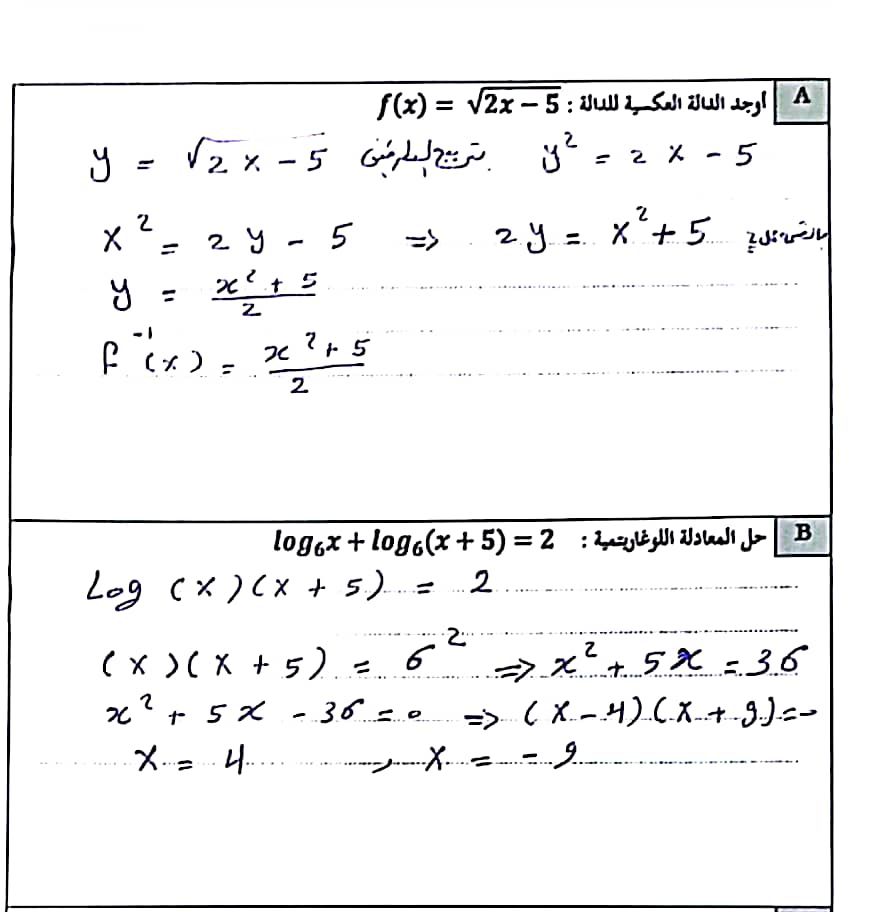 A أوجد الدالة العكسية للدالة : f(x) = √2x − 5
y = √2x − 5 بتربيع الطرفين y² = 2x − 5
x² = 2y − 5 ⇒ 2y = x² + 5
y = x² + 5 / 2
f⁻¹(x) = x² + 5 / 2
B حل المعادلة اللوغاريتمية : log₆x + log₆(x + 5) = 2
Log (x)(x + 5) = 2
(x)(x + 5) = 6² ⇒ x² + 5x = 36
x² + 5x − 36 = 0 ⇒ (x − 4)(x + 9) = 0
x = 4 , x = −9